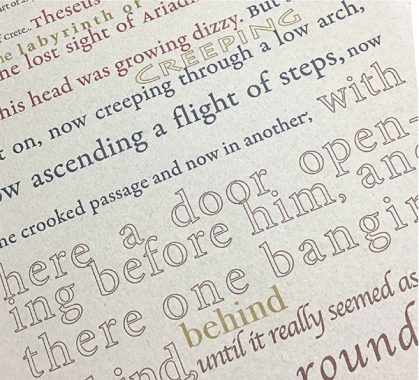 art of an
of Crete. Theseus
the labyrinth of
he lost sight of Ariad
his head was growing dizzy. But
CREEPING
t on, now creeping through a low arch,
ow ascending a flight of steps, now
ne crooked passage and now in another, with
here a door open-
ing before him, and
there one bangin
behind
hind, until it really seemed as
round